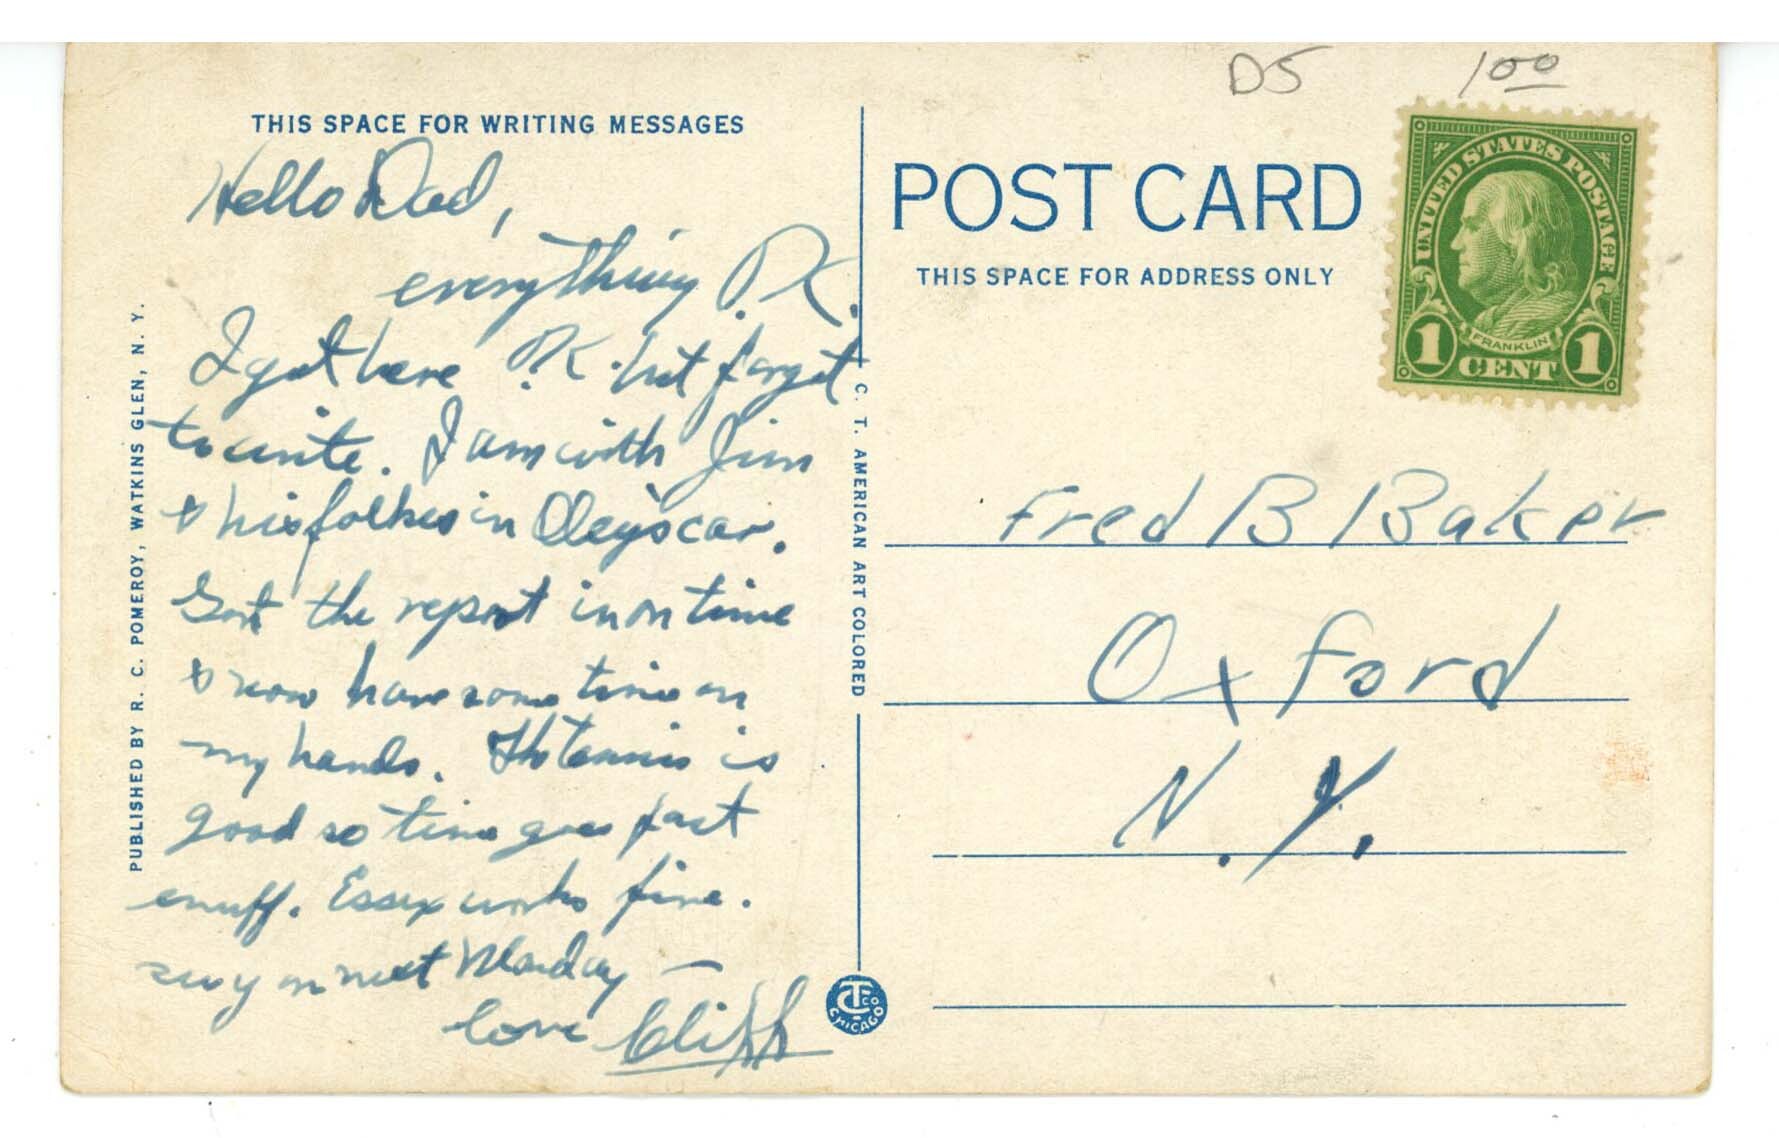 D5 1 00
THIS SPACE FOR WRITING MESSAGES
Hello Dad,
everything O.K.
I got here O.K. but forgot
to write. I am with Jim
& his folkes in car.
Sent the report in on time
& now have some time on
my hands. The Tennis is
good so time goes fast
enuff. Essex works fine.
on next Monday —
love Cliff
PUBLISHED BY R. C. POMEROY, WATKINS GLEN, N. Y.
C. T. AMERICAN ART COLORED
CT CO
CHICAGO
POST CARD
THIS SPACE FOR ADDRESS ONLY
UNITED STATES POSTAGE
FRANKLIN
1 CENT 1
Fred B Baker
Oxford
N. Y.